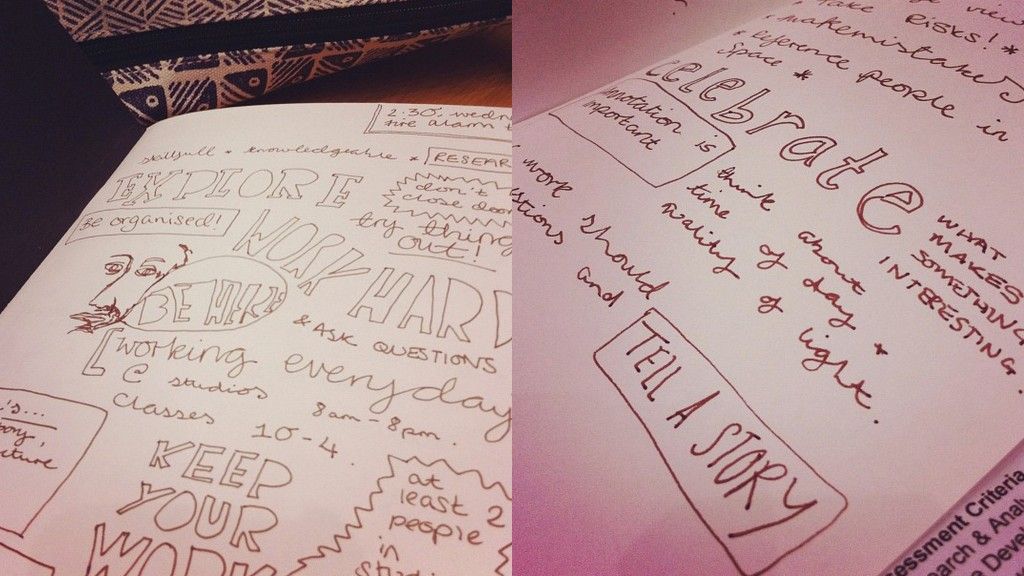 2.30, wedn
fire alarm t
skillfull * knowledgeable *
RESEAR
EXPLORE
don't
close door
Be organised!
try things
out!
WORK HARD
BE HERE
& ASK QUESTIONS
working everyday
@ studios 8am-8pm.
Classes 10-4.
KEEP
YOUR
WORK
at
least 2
people
in
studi
's...
ory,
cture
view
take RISKS! *
* makemistakes
* Reference people in
Space *
celebrate
annotation is
important
think about
time of day *
quality of light.
WHAT
MAKES
SOMETHING
INTERESTING.
work should
estions and
TELL A STORY
essment Criteria
arch & Analy
Deve